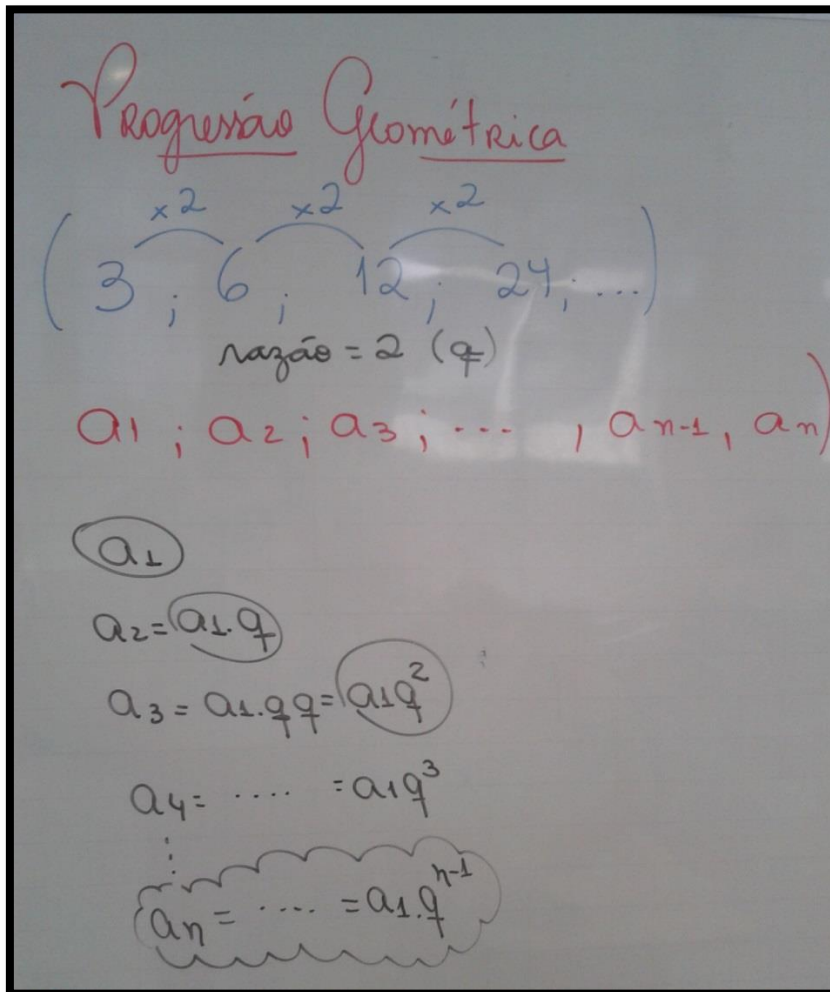 Progressão Geométrica
×2 ×2 ×2
(3; 6; 12; 24; ...)
razão = 2 (q)
a1; a2; a3; ..., an-1, an)
a1
a2 = a1.q
a3 = a1.qq = a1q²
a4 = .... = a1q³
⋮
an = .... = a1.q^n-1